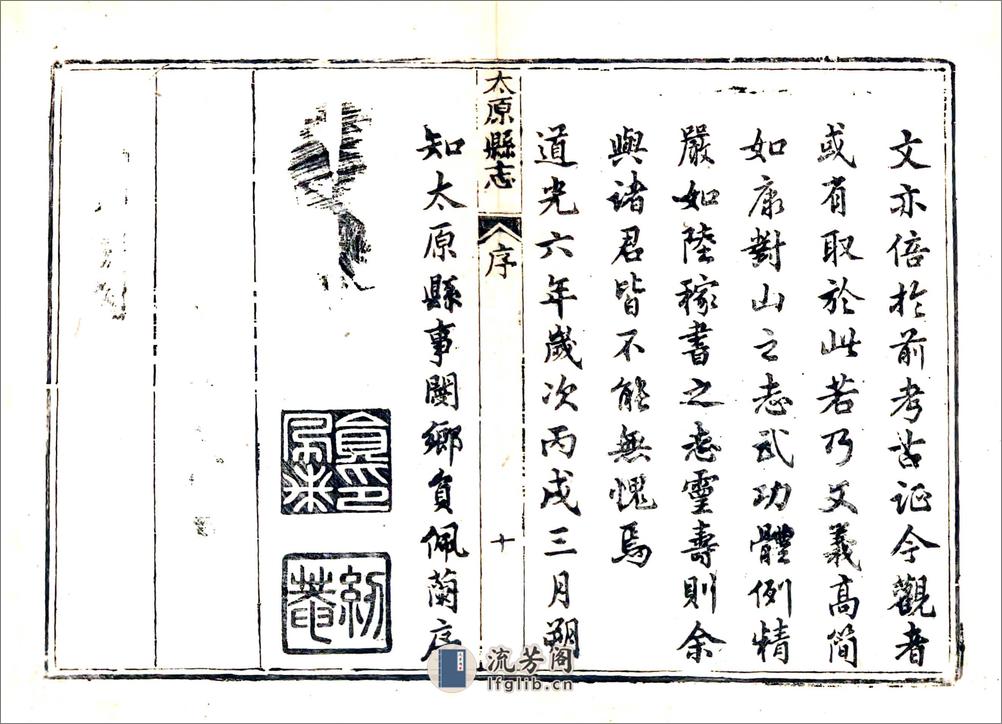 文亦倍於前考古证今觀者
或有取於此若乃文義高簡
如康對山之志武功體例精
嚴如陸稼書之志靈壽則余
與诸君皆不能無愧焉
道光六年歲次丙戌三月朔
知太原縣事閿鄉員佩蘭序
太原縣志
序
十
流芳阁
lfglib.cn